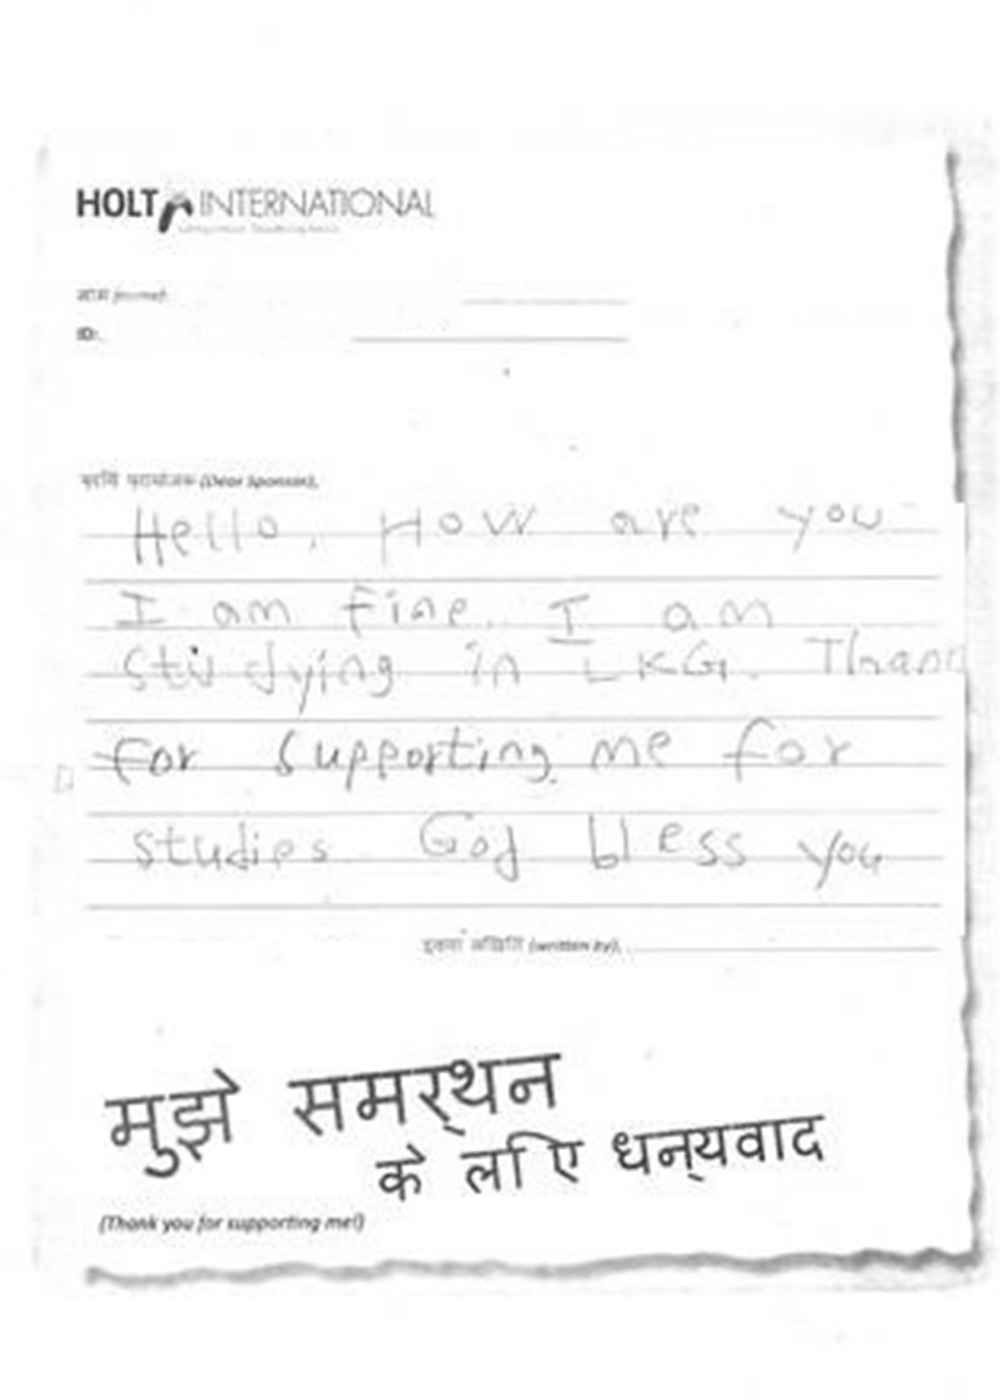 HOLT INTERNATIONAL
नाम (name):
ID:
(Dear Sponsor),
Hello, How are you
I am fine. I am
studying in LKG. Thank
for supporting me for
studies God bless you
(written by),
मुझे समर्थन
के लिए धन्यवाद
(Thank you for supporting me!)